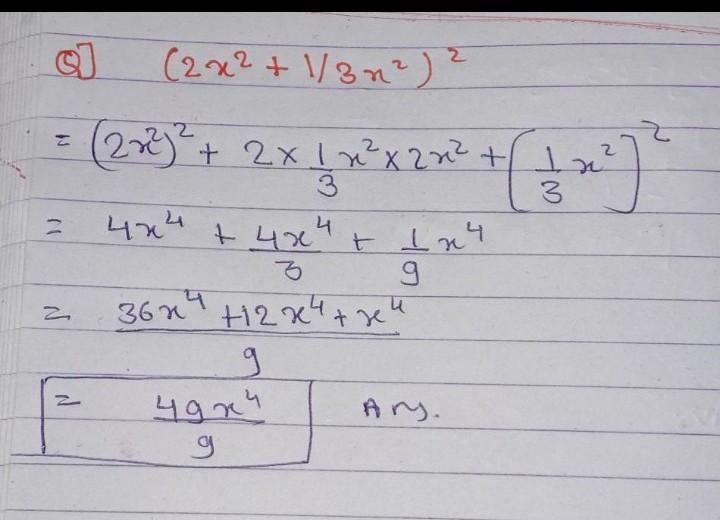 Q] (2x² + 1/3x²)²
= (2x²)² + 2 × 1/3 x² × 2x² + [1/3 x²]²
= 4x⁴ + 4x⁴/3 + 1/9 x⁴
= 36x⁴ + 12x⁴ + x⁴ / 9
= 49x⁴/9 Ans.